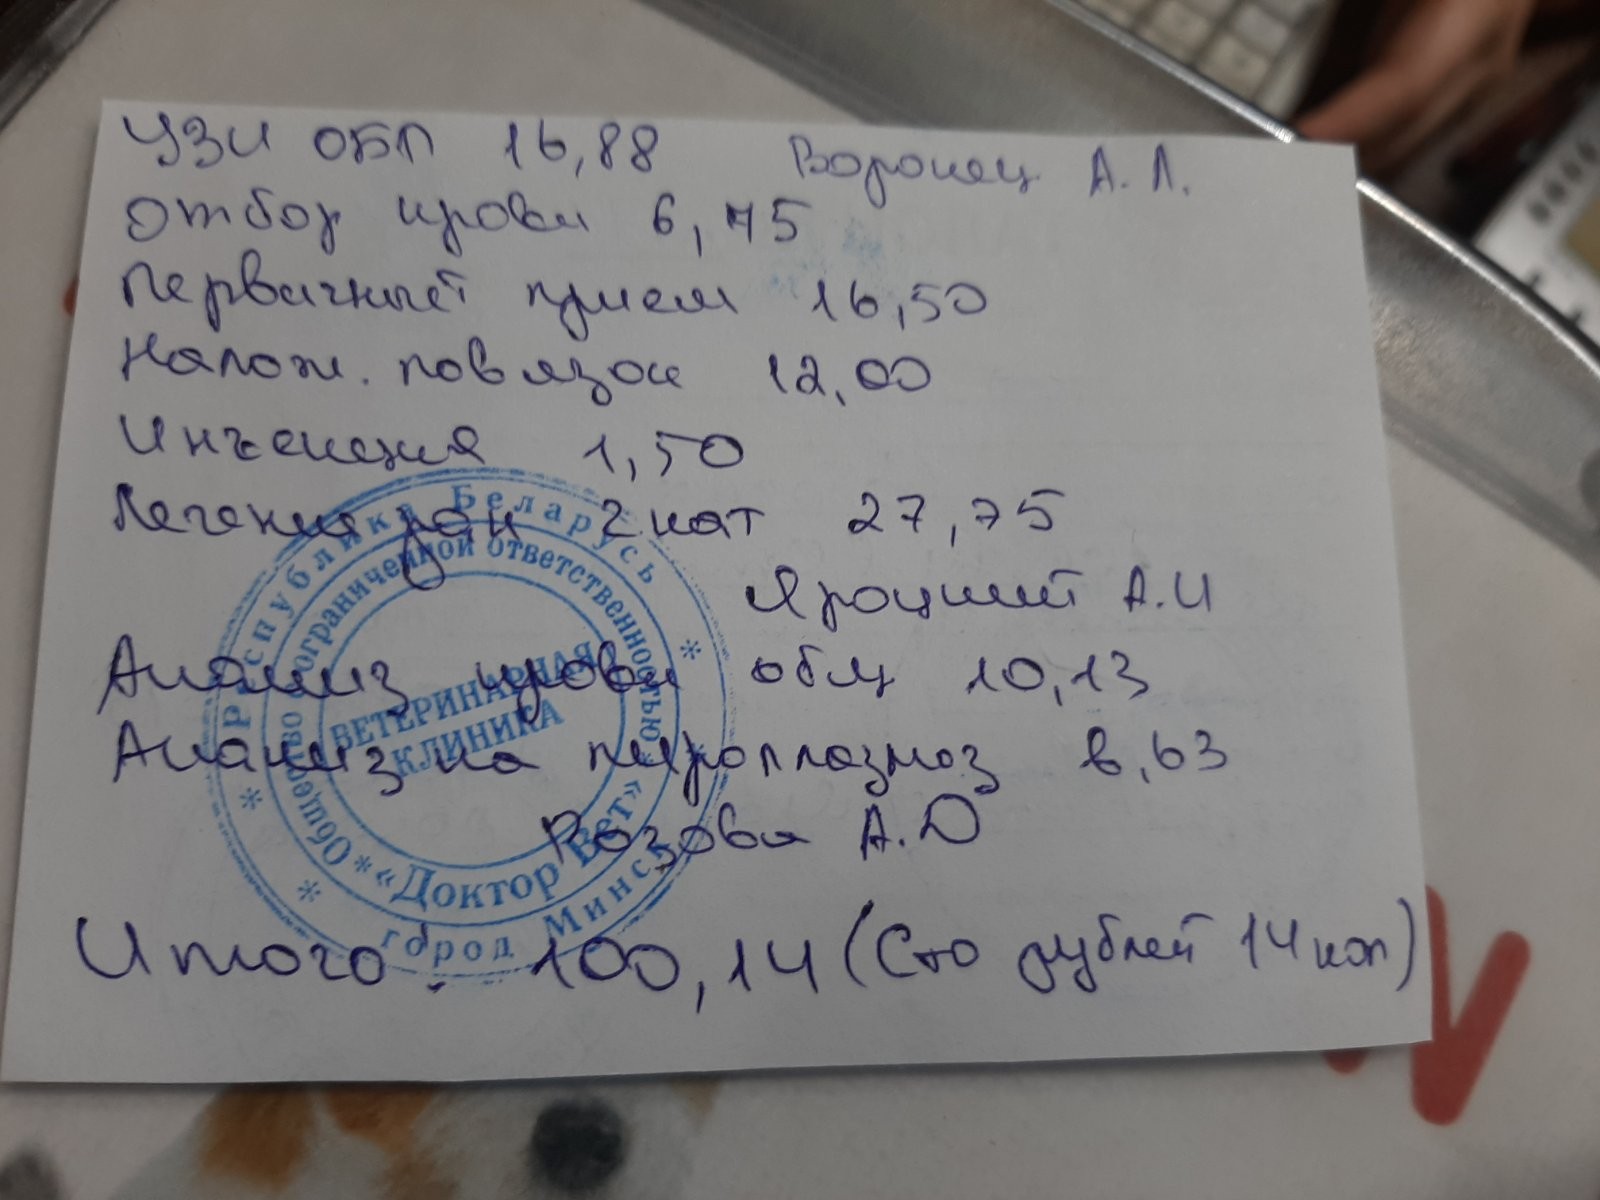 УЗИ ОБП 16,88 Воронец А.Л.
Отбор крови 6,75
Первичный прием 16,50
Налож. повязок 12,00
Инъекция 1,50
Лечение ран 2 кат 27,75
Яроцкий А.И
Анализ крови общ 10,13
Анализ на пироплазмоз 8,63
Розова А.Ю
Итого: 100,14 (Сто рублей 14 коп)
Республика Беларусь
* город Минск *
Общество с ограниченной ответственностью
* «Доктор Вет»
ВЕТЕРИНАРНАЯ
КЛИНИКА